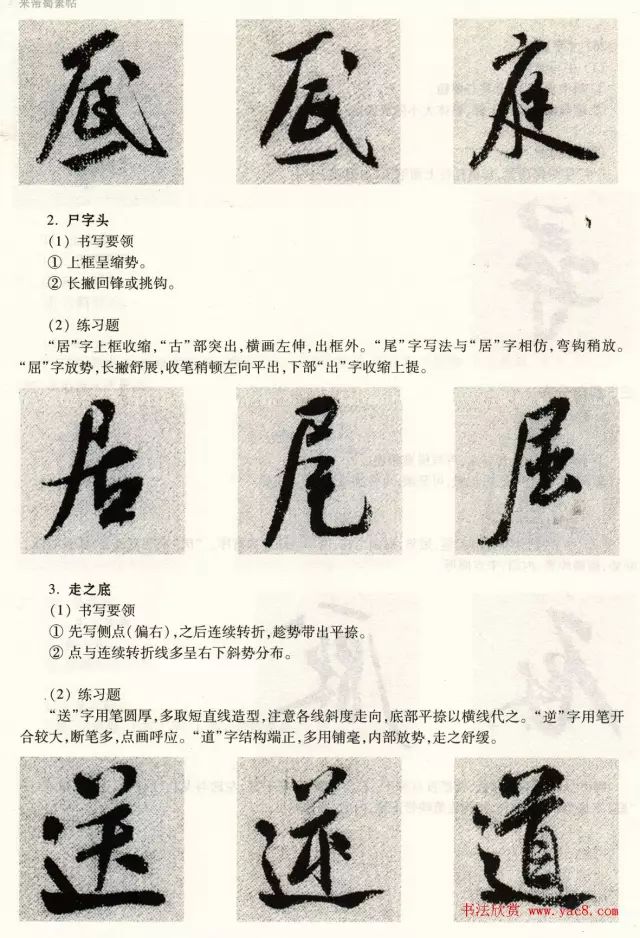 米芾蜀素帖
底 底 庭
2. 尸字头
(1) 书写要领
① 上框呈缩势。
② 长撇回锋或挑钩。
(2) 练习题
“居”字上框收缩,“古”部突出,横画左伸,出框外。“尾”字写法与“居”字相仿,弯钩稍放。
“屈”字放势,长撇舒展,收笔稍顿左向平出,下部“出”字收缩上提。
居 尾 屈
3. 走之底
(1) 书写要领
① 先写侧点(偏右),之后连续转折,趁势带出平捺。
② 点与连续转折线多呈右下斜势分布。
(2) 练习题
“送”字用笔圆厚,多取短直线造型,注意各线斜度走向,底部平捺以横线代之。“逆”字用笔开
合较大,断笔多,点画呼应。“道”字结构端正,多用铺毫,内部放势,走之舒缓。
送 逆 道
书法欣赏 www.yac8.com